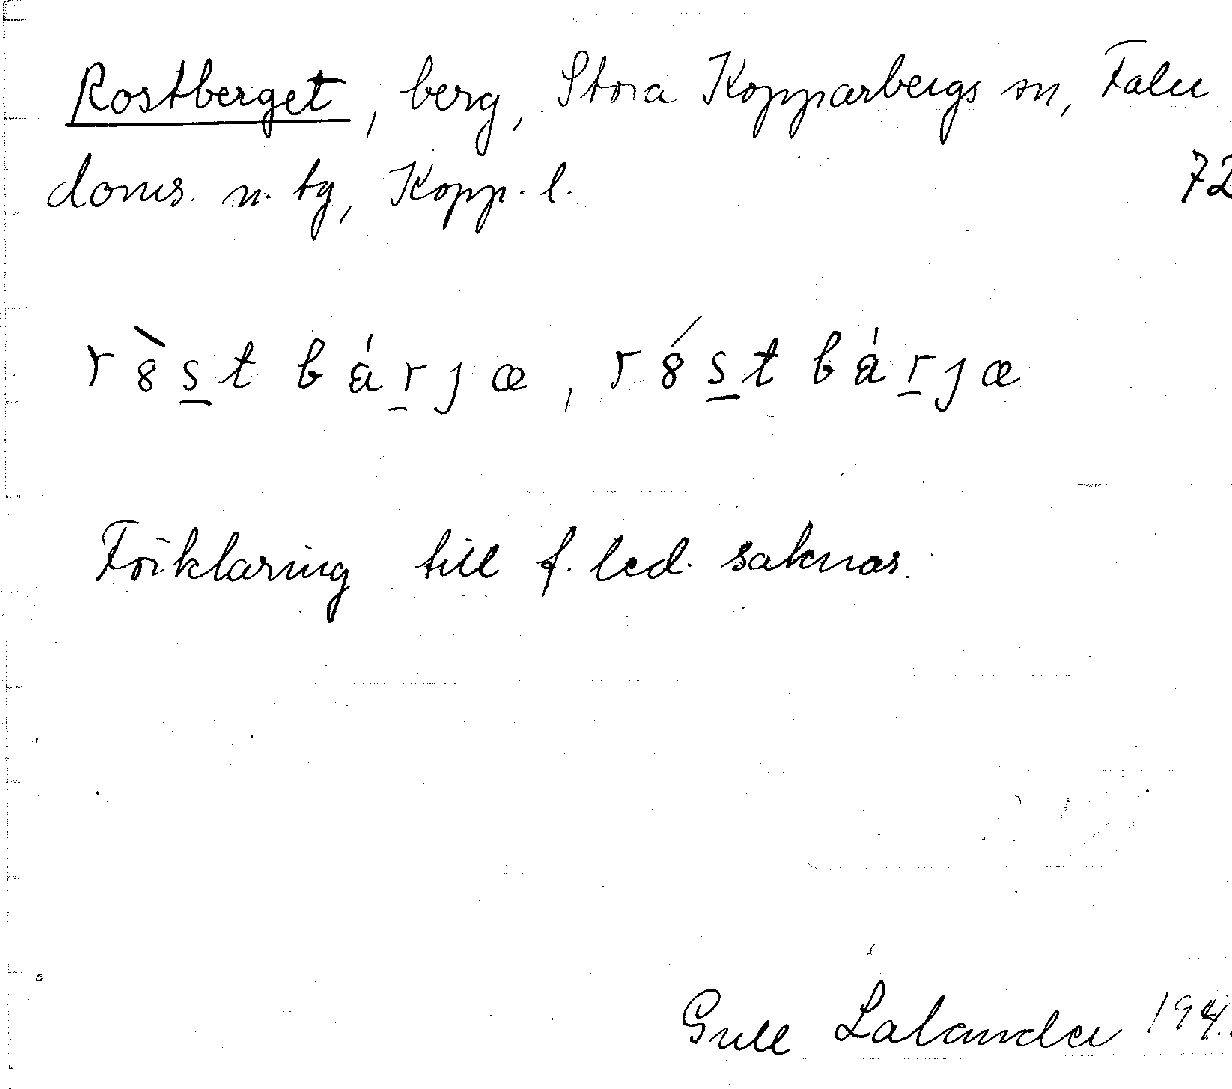 Rostberget, berg, Stora Kopparbergs sn, Falu
doms. n. tg, Kopp. l. 72
r8̀s̲t bá̱r̲ȷæ, r8́s̲t bár̲ȷæ
Förklaring till f. led. saknas.
Gull Lalander 194